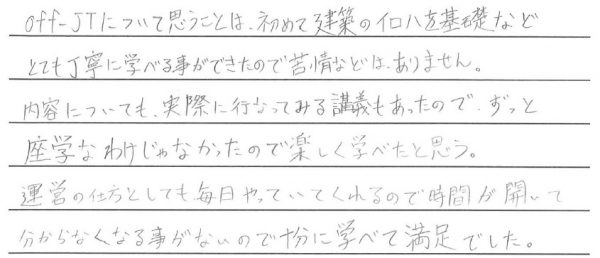 off-JTについて思うことは、初めて建築のイロハを基礎など
とても丁寧に学べる事ができたので苦情などは、ありません。
内容についても、実際に行なってみる講義もあったので、ずっと
座学なわけじゃなかったので楽しく学べたと思う。
運営の仕方としても毎日やっていてくれるので時間が開いて
分からなくなる事がないので十分に学べて満足でした。